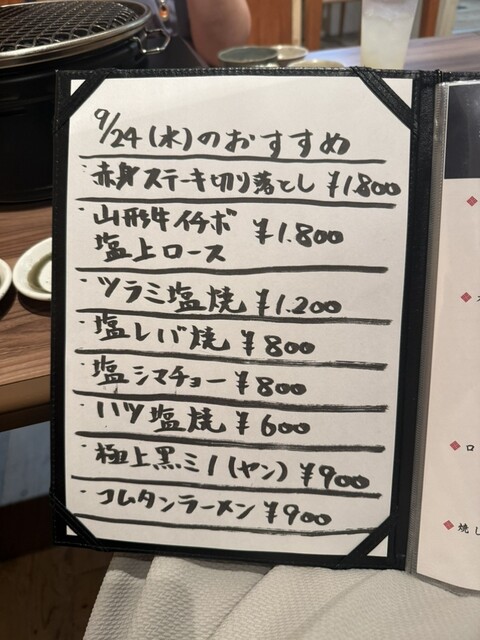 9/24(水)のおすすめ
・赤身ステーキ切り落とし ¥1.800
・山形牛イチボ ¥1.800
塩上ロース
・ツラミ塩焼 ¥1.200
・塩レバ焼 ¥800
・塩シマチョー ¥800
・ハツ塩焼 ¥600
・極上黒ミノ(ヤン) ¥900
・コムタンラーメン ¥900
ロ
焼し